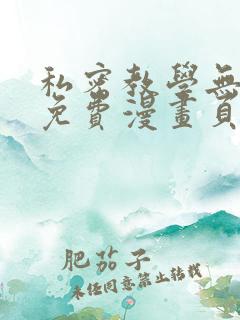 私密教學無
免費漫畫頁
肥茄子
未经同意禁止转载